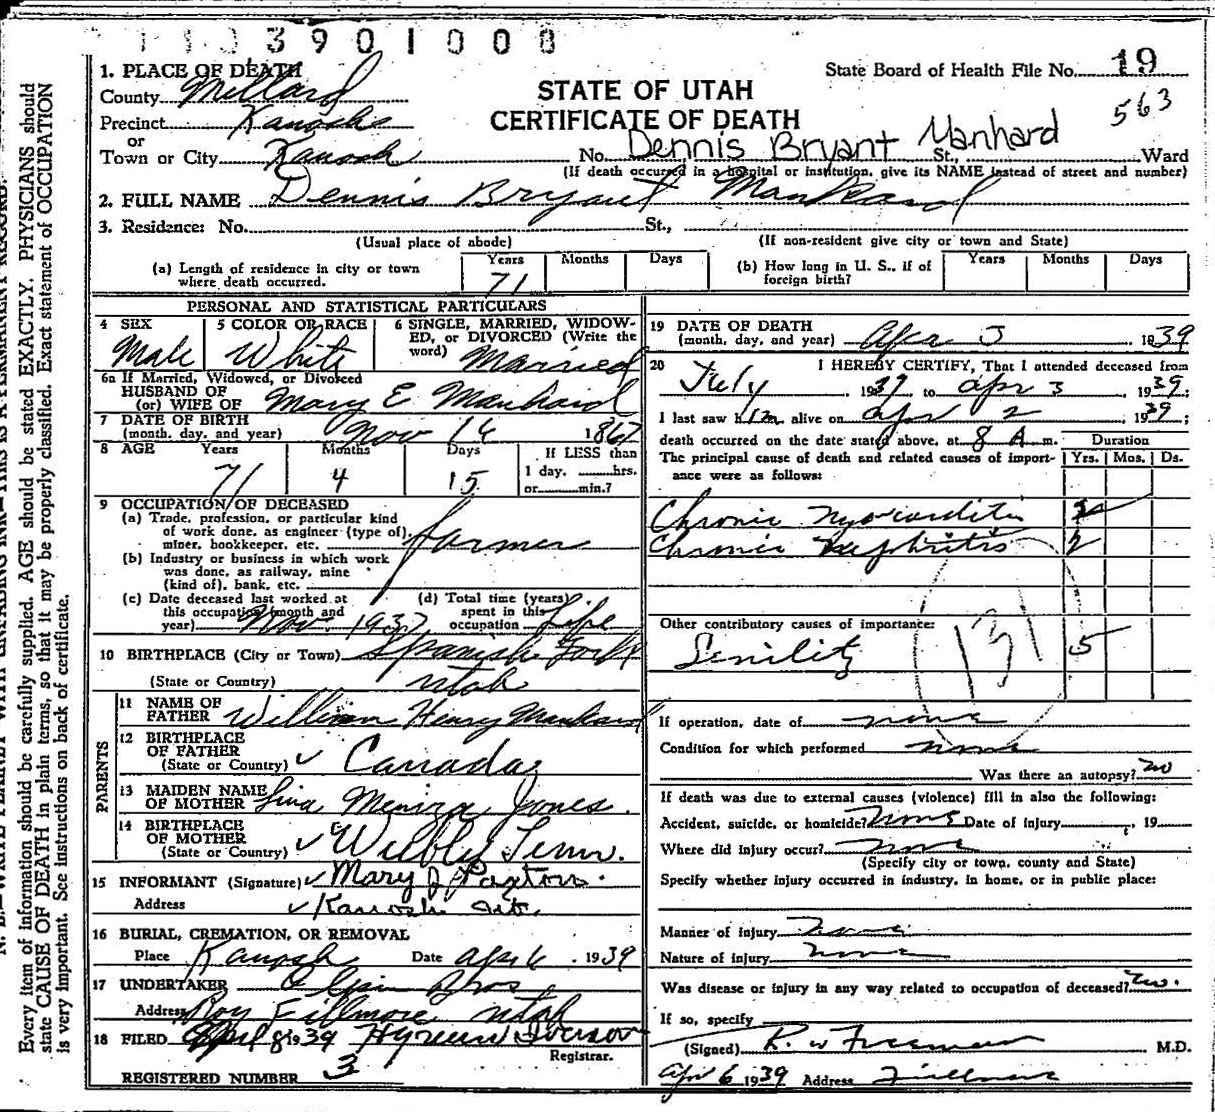 3901008
1. PLACE OF DEATH
County Millard
Precinct Kanosh
or
Town or City Kanosh
STATE OF UTAH
CERTIFICATE OF DEATH
State Board of Health File No. 19
563
No. Dennis Bryant Manhard St., Ward
(If death occurred in a hospital or institution, give its NAME instead of street and number)
2. FULL NAME Dennis Bryant Manhard
3. Residence: No. St.,
(Usual place of abode) (If non-resident give city or town and State)
(a) Length of residence in city or town where death occurred. Years 71 Months Days
(b) How long in U. S., if of foreign birth? Years Months Days
PERSONAL AND STATISTICAL PARTICULARS
4 SEX Male
5 COLOR OR RACE White
6 SINGLE, MARRIED, WIDOW-
ED, or DIVORCED (Write the
word) Married
6a If Married, Widowed, or Divorced
HUSBAND OF
(or) WIFE OF Mary E Manhard
7 DATE OF BIRTH
(month, day, and year) Nov 1867
8 AGE Years 71 Months 4 Days 15
If LESS than
1 day, hrs.
or min.?
9 OCCUPATION OF DECEASED
(a) Trade, profession, or particular kind
of work done, as engineer (type of)
miner, bookkeeper, etc. farmer
(b) Industry or business in which work
was done, as railway, mine
(kind of), bank, etc.
(c) Date deceased last worked at
this occupation (month and
year) Nov. 1937
(d) Total time (years)
spent in this
occupation Life
10 BIRTHPLACE (City or Town) Spanish Fork
(State or Country) Utah
PARENTS
11 NAME OF
FATHER William Henry Manhard
12 BIRTHPLACE
OF FATHER
(State or Country) Canada
13 MAIDEN NAME
OF MOTHER Jones
14 BIRTHPLACE
OF MOTHER
(State or Country) Tenn.
15 INFORMANT (Signature) Mary J Paxton.
Address Kanosh Ut.
16 BURIAL, CREMATION, OR REMOVAL
Place Kanosh Date Apr 6, 1939
17 UNDERTAKER Bros
Address Fillmore Utah
18 FILED April 8 1939
Registrar.
REGISTERED NUMBER 3
19 DATE OF DEATH
(month, day, and year) Apr 3, 1939
20 I HEREBY CERTIFY, That I attended deceased from
July, 1937 to Apr 3, 1939;
I last saw him alive on Apr 2, 1939;
death occurred on the date stated above, at 8 A m.
Duration
The principal cause of death and related causes of import-
ance were as follows:
Yrs. Mos. Ds.
Chronic Myocarditis 2
Chronic Nephritis 2
Other contributory causes of importance:
131
Senility 5
If operation, date of none
Condition for which performed none
Was there an autopsy? no
If death was due to external causes (violence) fill in also the following:
Accident, suicide, or homicide? None Date of injury, 19
Where did injury occur? none
(Specify city or town, county and State)
Specify whether injury occurred in industry, in home, or in public place:
Manner of injury none
Nature of injury none
Was disease or injury in any way related to occupation of deceased? no.
If so, specify
(Signed) R. W Freeman M.D.
Apr 6 1939 Address Fillmore
Every item of information should be carefully supplied. AGE should be stated EXACTLY. PHYSICIANS should
state CAUSE OF DEATH in plain terms, so that it may be properly classified. Exact statement of OCCUPATION
is very important. See instructions on back of certificate.